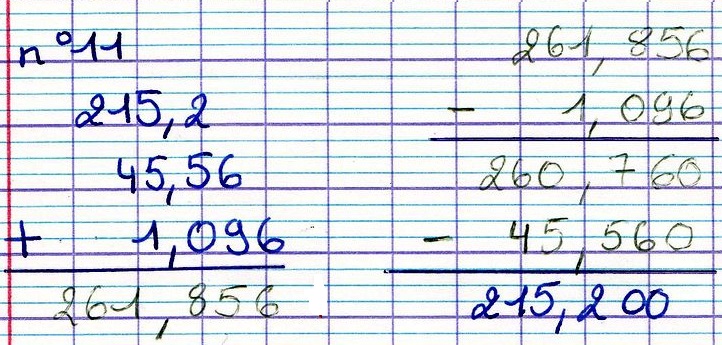 n°11
215,2
45,56
+ 1,096
261,856
261,856
- 1,096
260,760
- 45,560
215,200